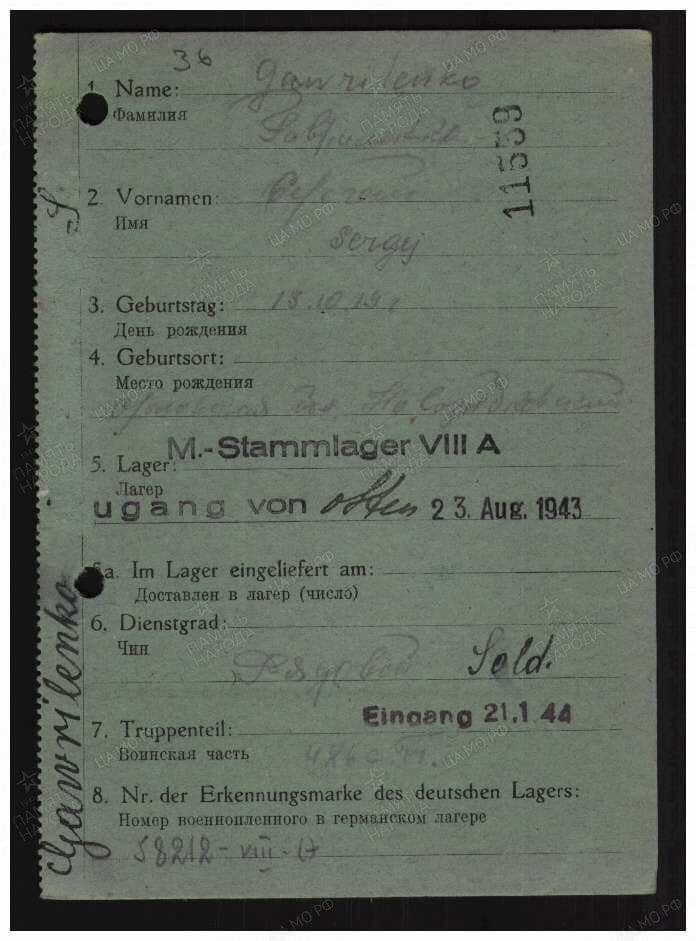 36
1. Name: Gawrilenko
Фамилия
11559
2. Vornamen:
Имя
Sergej
3. Geburtstag: 13.10.19 г
День рождения
4. Geburtsort:
Место рождения
M.-Stammlager VIII A
5. Lager:
Лагер
ugang von Osten 23. Aug. 1943
5a. Im Lager eingeliefert am:
Доставлен в лагер (число)
6. Dienstgrad:
Чин
Рядовой Sold.
Eingang 21.1 44
7. Truppenteil:
Воинская часть
8. Nr. der Erkennungsmarke des deutschen Lagers:
Номер военнопленного в германском лагере
58212 - VIII - A
Gawrilenko
ПАМЯТЬ НАРОДА
ЦА МО РФ